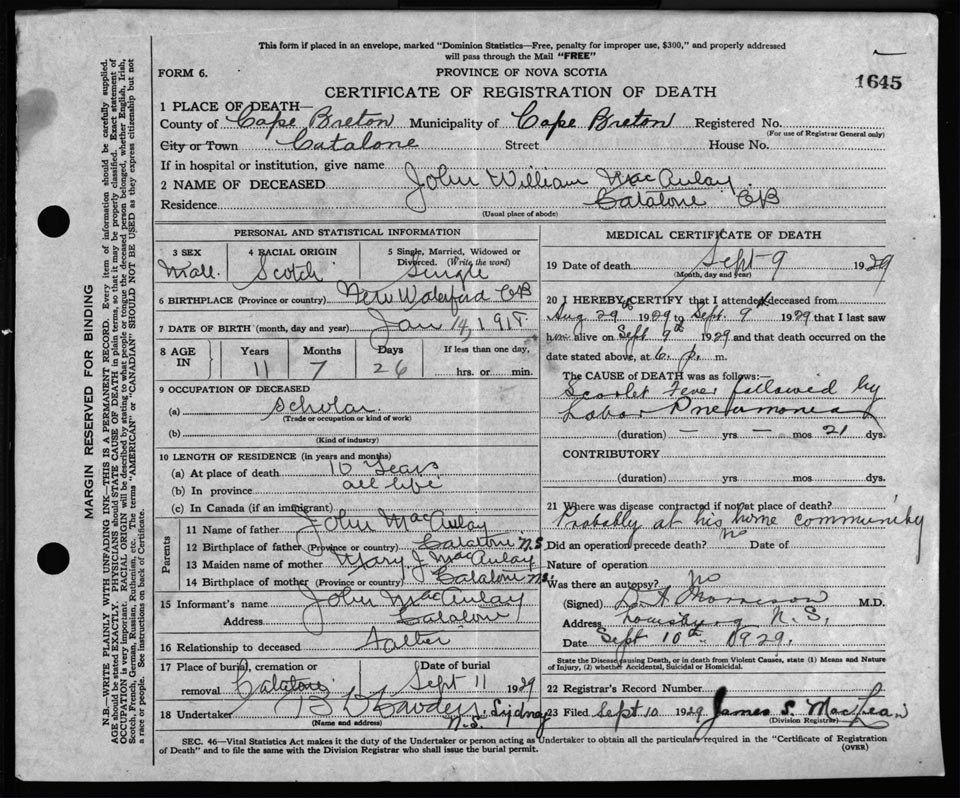 This form if placed in an envelope, marked "Dominion Statistics—Free, penalty for improper use, $300," and properly addressed
will pass through the Mail "FREE"
FORM 6.
PROVINCE OF NOVA SCOTIA
1645
CERTIFICATE OF REGISTRATION OF DEATH
1 PLACE OF DEATH—
County of Cape Breton Municipality of Cape Breton Registered No.
(For use of Registrar General only)
City or Town Catalone Street House No.
If in hospital or institution, give name
2 NAME OF DECEASED John William MacAulay
Residence Catalone CB
(Usual place of abode)
PERSONAL AND STATISTICAL INFORMATION
3 SEX 4 RACIAL ORIGIN 5 Single, Married, Widowed or Divorced. (Write the word)
Male. Scotch Single
6 BIRTHPLACE (Province or country) New Waterford CB
7 DATE OF BIRTH (month, day and year) Jan 14, 1918.
8 AGE IN Years Months Days If less than one day,
11 7 26 hrs. or min.
9 OCCUPATION OF DECEASED
(a) Scholar.
(Trade or occupation or kind of work)
(b)
(Kind of industry)
10 LENGTH OF RESIDENCE (in years and months)
(a) At place of death 10 Years
(b) In province all life
(c) In Canada (if an immigrant)
Parents
11 Name of father John MacAulay
12 Birthplace of father (Province or country) Catalone N.S
13 Maiden name of mother Mary J MacAulay
14 Birthplace of mother (Province or country) Catalone N.S.
15 Informant's name John MacAulay
Address Catalone
16 Relationship to deceased
17 Place of burial, cremation or removal Catalone Date of burial Sept 11 1929
18 Undertaker Sydney N.S.
(Name and address)
MEDICAL CERTIFICATE OF DEATH
19 Date of death Sept 9 1929
(Month, day and year)
20 I HEREBY CERTIFY that I attended deceased from
Aug 29th 1929 to Sept. 9 1929 that I last saw
him alive on Sept 9th 1929 and that death occurred on the
date stated above, at 6. p. m.
The CAUSE of DEATH was as follows:—
Scarlet Fever followed by
Lobar Pneumonea
(duration) — yrs — mos 21 dys.
CONTRIBUTORY
(duration) yrs. mos. dys.
21 Where was disease contracted if not at place of death?
Probably at his home community
Did an operation precede death? no Date of
Nature of operation
Was there an autopsy? no
(Signed) Morrison M.D.
Address Louisburg N.S.
Date Sept 10th 1929.
State the Disease causing Death, or in death from Violent Causes, state (1) Means and Nature
of Injury, (2) whether Accidental, Suicidal or Homicidal.
22 Registrar's Record Number
23 Filed Sept 10 1929 James S. MacLean
(Division Registrar)
SEC. 46—Vital Statistics Act makes it the duty of the Undertaker or person acting as Undertaker to obtain all the particulars required in the "Certificate of Registration
of Death" and to file the same with the Division Registrar who shall issue the burial permit.
(OVER)
MARGIN RESERVED FOR BINDING
N.B.—WRITE PLAINLY WITH UNFADING INK—THIS IS A PERMANENT RECORD. Every item of information should be carefully supplied.
AGE should be stated EXACTLY. PHYSICIANS should STATE CAUSE OF DEATH in plain terms, so that it may be properly classified. Exact statement of
OCCUPATION is very important. RACIAL ORIGIN will be described by stating to what people or tongue the deceased person belonged, whether English, Irish,
Scotch, French, German, Russian, Ruthenian, etc. The terms "AMERICAN" or "CANADIAN" SHOULD NOT BE USED as they express citizenship but not
a race or people. See instructions on back of Certificate.